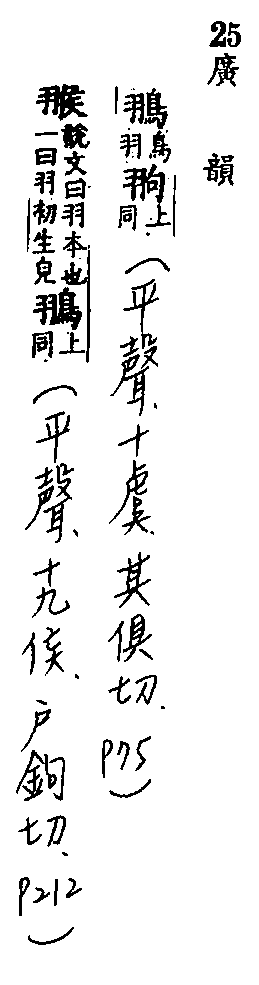 25 廣韻
鳥羽翑上同(平聲、十虞、其俱切、P75)
翭說文曰羽本也一曰羽初生皃上同(平聲、十九侯、戶鉤切、P212)